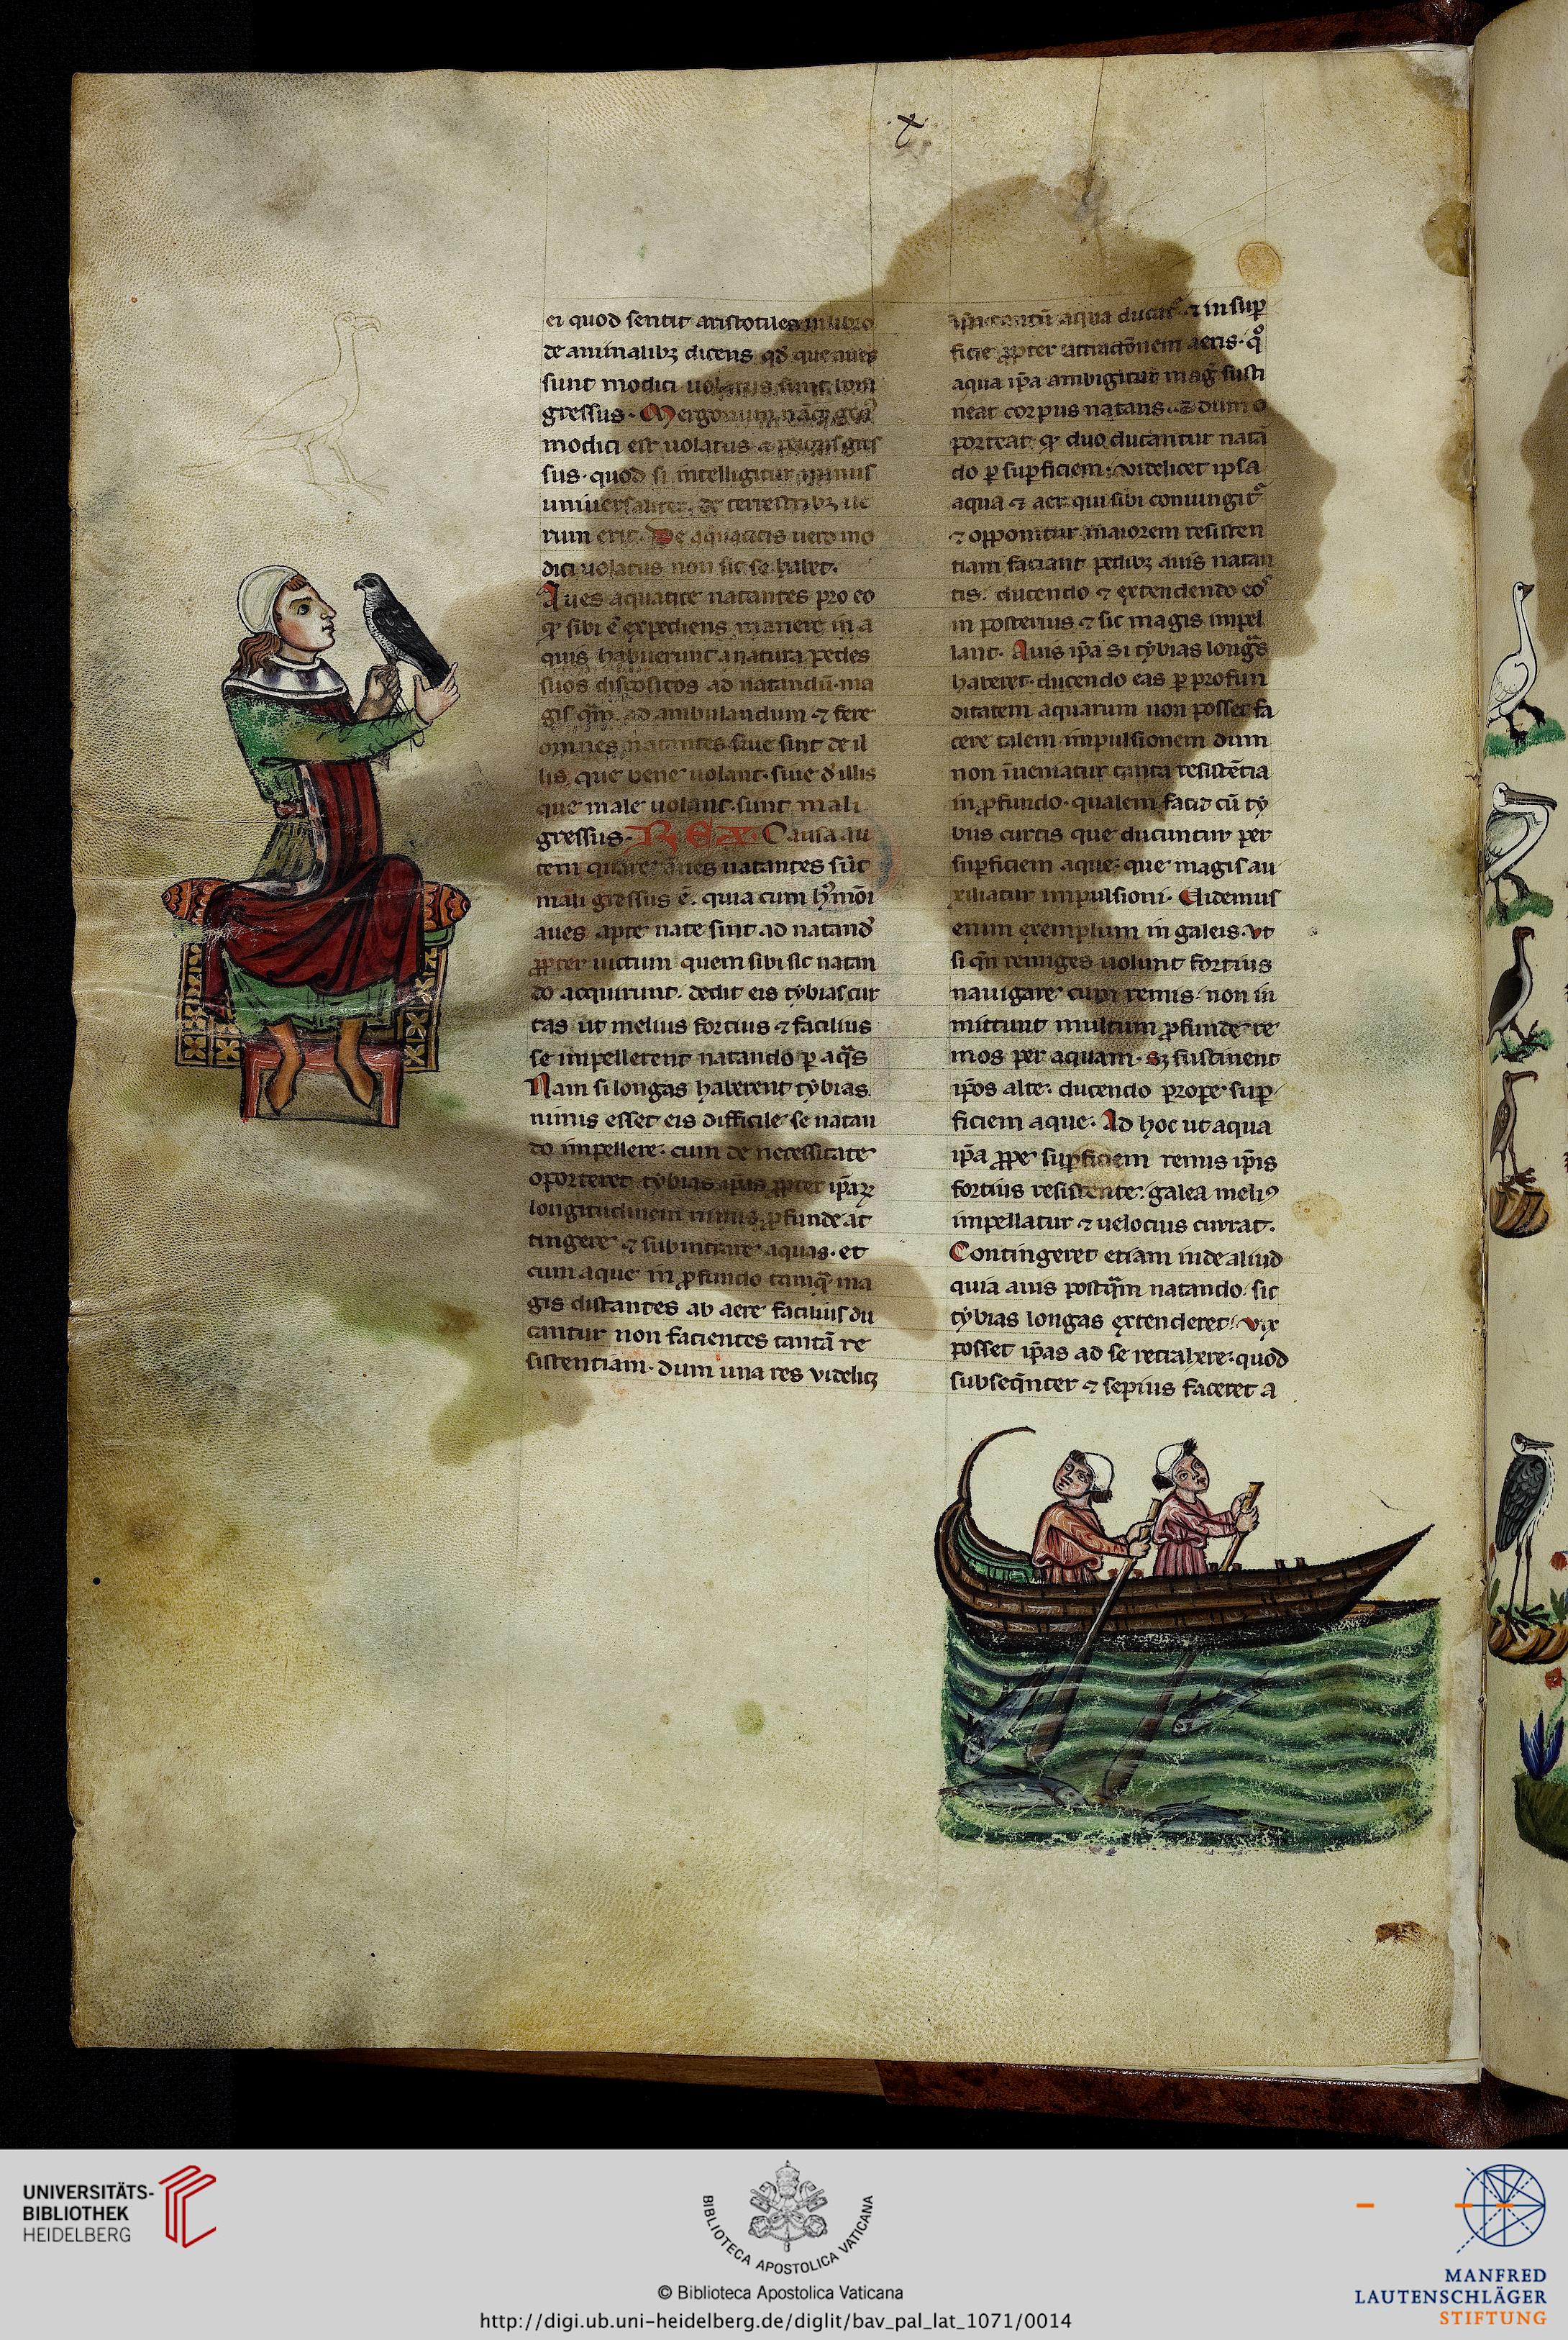 ꝉ
ei quod sentit aristotiles in libro
de animalibꝫ dicens qd̄ que aues
sunt modici uolatus sunt boni
gressus. Mergorum
modici est uolatus ⁊ gres
sus. quod si intelligitur minus
uniuersaliter. de terrestribꝫ ue
rum erit. De aquaticis uero mo
dici uolatus non sic se habet.
Aues aquatice natantes pro eo
ꝙ sibi ē expediens manere in a
quis habuerunt a natura pedes
suos dispositos ad natandū. ma
gis qͣm ad ambulandum ⁊ fere
omnes natantes siue sint de il
lis que bene uolant. siue d' illis
que male uolant. sunt mali
gressus. REX Causa au
tem quare oēs natantes sūt
mali gressus ē. quia cum hͥmōi
aues apte nate sint ad natand'
ꝓpter uictum quem sibi sic natan
do acquirunt. dedit eis tybias cur
tas ut melius fortius ⁊ facilius
se impellerent natando ꝑ aqͣs
Nam si longas haberent tybias
nimis esset eis difficile se natan
do impellere. cum de necessitate
oporteret tybias ip̄as ꝓpter ip̄aꝝ
longitudinem nimis ꝓfunde at
tingere ⁊ subintrare aquas. et
cum aque in ꝓfundo tamqͣ ma
gis distantes ab aere facilius du
cantur non facientes tantā re
sistentiam. dum una res videlicꝫ
ip̄a tantū aqua ducatͬ ⁊ in suꝑ
ficie ꝓpter attractōnem aeris. qͦ
aqua ip̄a ambigitur mag̃ susti
neat corpus natans. ⁊ dum o
porteat ꝙ duo ducantur natā
do ꝑ suꝑficiem. videlicet ipsa
aqua ⁊ aer qui sibi coniungitͬ
⁊ opponitur maiorem resisten
tiam faciant pedibꝫ auis natan
tis. ducendo ⁊ extendendo eoˢ
in posterius ⁊ sic magis impel
lant. Auis ip̄a si tybias longͣs
haberet. ducendo eas ꝑ profun
ditatem aquarum non posset fa
cere talem impulsionem dum
non īueniatur tanta resistētia
in ꝓfundo. qualem facit cū ty
biis curtis que ducuntur per
suꝑficiem aque. que magis au
xiliatur impulsioni. Uidemus
enim exemplum in galeis. vt
si qn̄ remiges uolunt fortius
nauigare cum remis. non in
mittunt multum ꝓfunde re
mos per aquam. sꝫ sustinent
ip̄os alte. ducendo prope suꝑ
ficiem aque. Ad hoc ut aqua
ip̄a ꝓpe suꝑficiem remis ip̄is
fortius resistente. galea meliꝰ
impellatur ⁊ uelocius currat.
Contingeret etiam inde aliud
quia auis postqͣm natando sic
tybias longas extenderet. vix
posset ip̄as ad se retrahere. quod
subseq̄nter ⁊ sepius faceret a
UNIVERSITÄTS-
BIBLIOTHEK
HEIDELBERG
BIBLIOTECA APOSTOLICA VATICANA
© Biblioteca Apostolica Vaticana
http://digi.ub.uni-heidelberg.de/diglit/bav_pal_lat_1071/0014
MANFRED
LAUTENSCHLÄGER
STIFTUNG